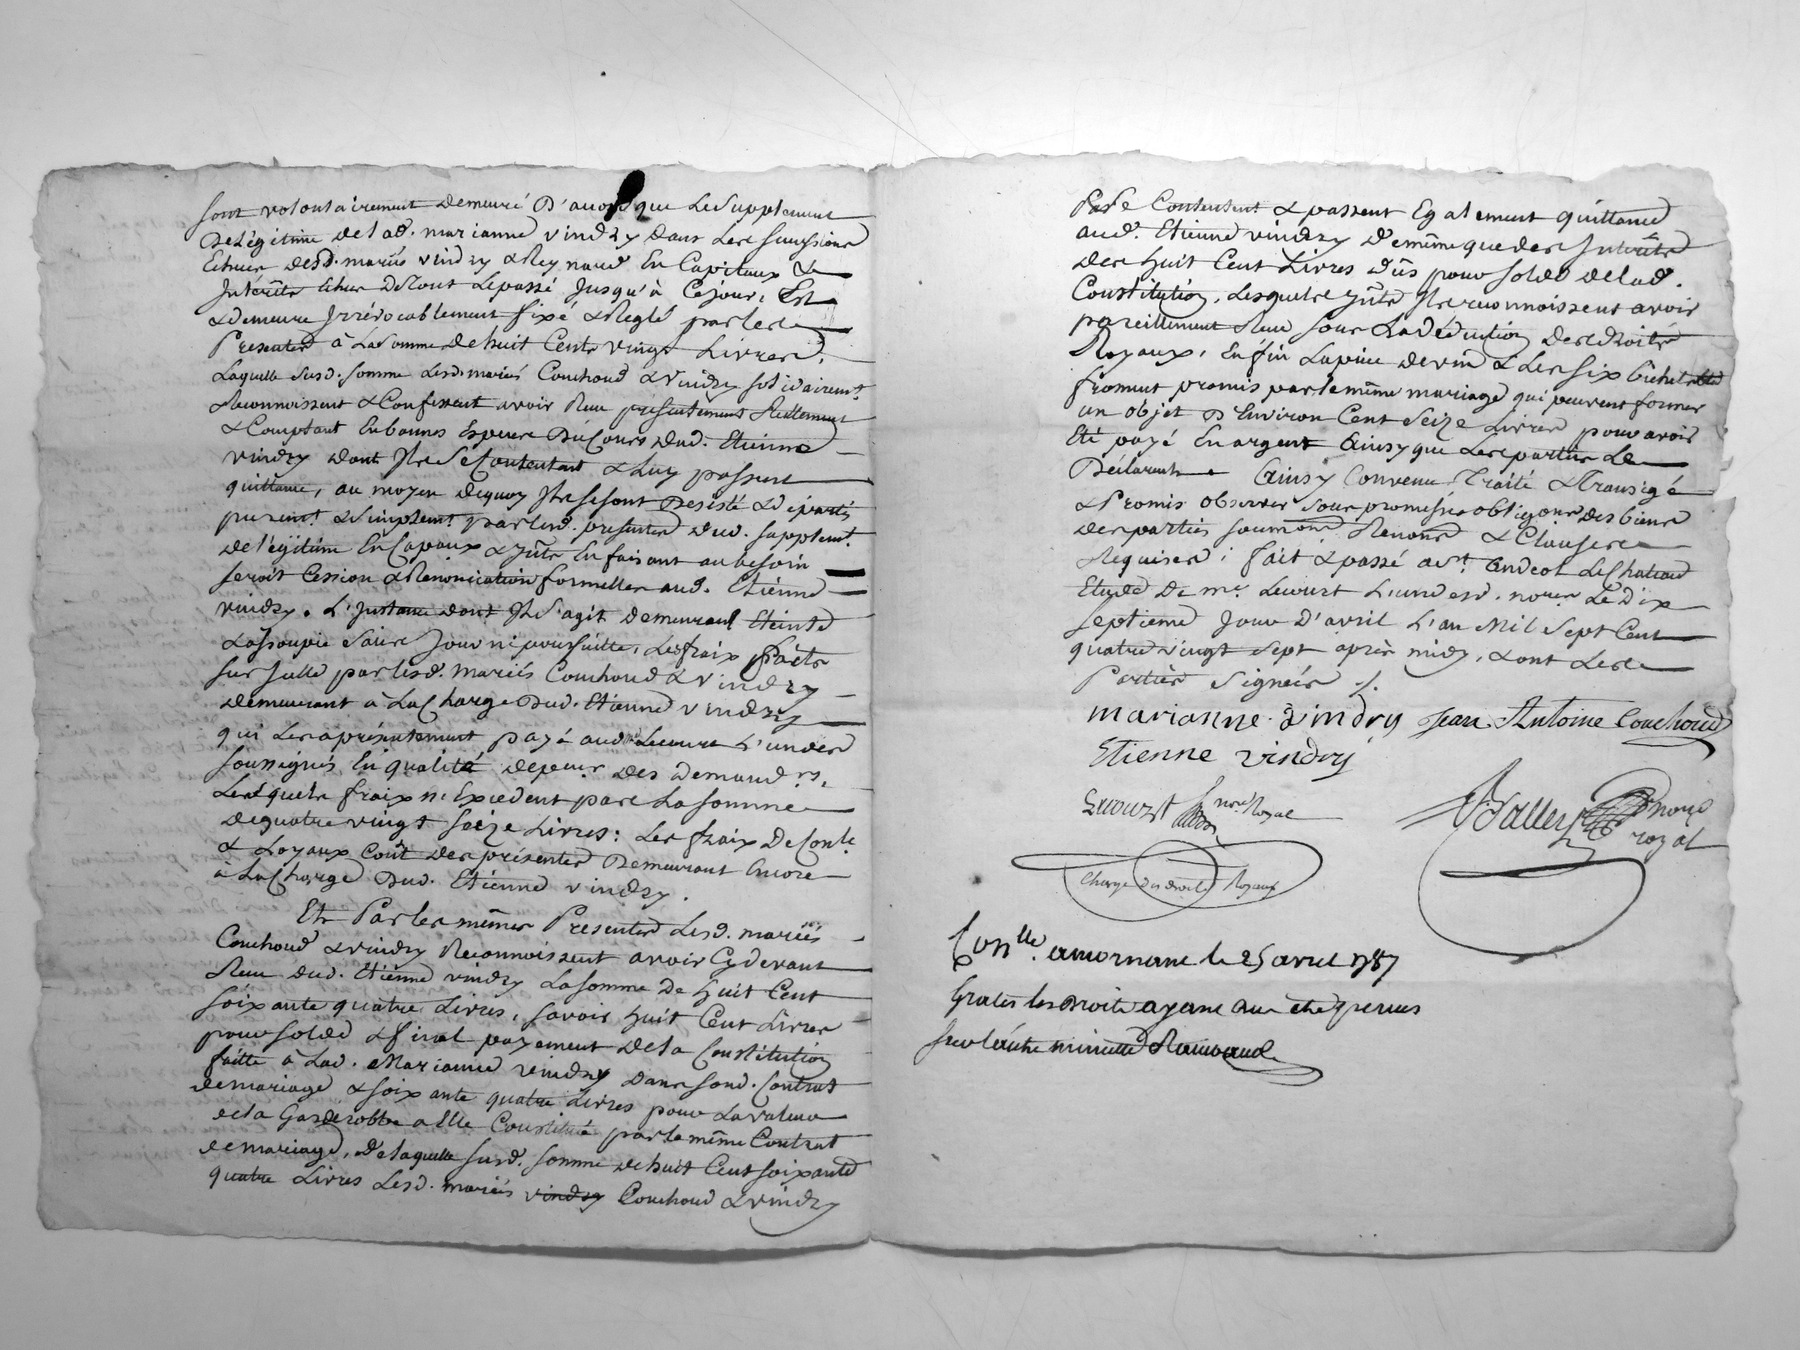 sont volontairement demeuré d'accord que le supplement
de légitime de lad. marianne vindry dans les successions
echues desd. mariés vindry & Reynaud En Capitaux &
Intérêts échus de tout le passé jusqu'à ce jour, Est
& demeure Irrévocablement fixé & Reglé par les
Presentes à La Somme de huit Cents vingt Livres,
Laquelle susd. somme Lesd. mariés Couchoud & vindry solidairemt.
Reconnoissent & Confessent avoir Reçu présentement Réellement
& Comptant En bonnes Especes du Cours dud. Etienne
vindry dont Ils se Contentent & Luy passent
quittance, au moyen dequoy Ils se sont Desisté & départis
puremt. & simplemt. par lesd. presentes dud. supplemt.
de légitime En Capaux & Jnts En faisant au besoin
seroit Cession & Renonciation formelles aud. Etienne
vindry. L'Instance dont Il s'agit demeurant Eteinte
& assoupie sans Jour ni poursuitte, Les fraix faits
sur Icelle par lesd. mariés Couchoud & vindry
demeurant à La Charge dud. Etienne vindry
qui Les a présentement payé aud. Me Lecourt L'un des
soussignés En qualité de des Demandrs.
Lesquels fraix n'Excedent pas La somme
de quatre vingt seize Livres: Les fraix de Conle.
& Loyaux Coût des présentes Demeurant Encore
à La Charge dud. Etienne vindry.
Et Par les mêmes Presentes Lesd. mariés
Couchoud & vindry Reconnoissent avoir Cy devant
Reçu dud. Etienne vindry La somme de huit Cent
soixante quatre Livres, savoir huit Cent Livres
pour solde & final payement de la Constitution
faitte à Lad. Marianne vindry dans sond. Contrat
de mariage & soixante quatre Livres pour La valeur
de la Garderobbe a Elle Constituée par le même Contrat
de mariage, de laquelle susd. somme de huit Cent soixante
quatre Livres Lesd. mariés vindry Couchoud & vindry
se Contentent & passent Egalement quittance
aud. Etienne vindry de même que des Intérêts
des huit Cent Livres dûs pour solde de lad.
Constitution, Lesquels Jnts Ils reconnoissent avoir
pareillement Reçu sous La déduction des droits
Royaux, Enfin La pièce de vin & Les six bichets
froment promis par le même mariage qui peuvent former
un objet d'Environ Cent seize Livres pour avoir
Eté payé En argent Ainsy que Les parties Le
Déclarent Ainsy Convenu Traité & Transigé
& Promis observer sous promesses obligons des biens
des parties soumons Renons & Clauses
Requises; fait & passé a St. andeol Le Chateau
Etude de me. Lecourt L'un desd. nores Le dix
septieme Jour d'avril L'an Mil sept Cent
quatre vingt sept après midy, & ont Les
Parties signées ./.
marianne vindry Jean Antoine Couchoud
Etienne vindry
Lecourt nore Royal
Vallet nore
royal
Chargé des droits Royaux
Conlle. a mornant le 25 avril 1787
Gratis les droits ayant été perçus
sur l'autre minutte